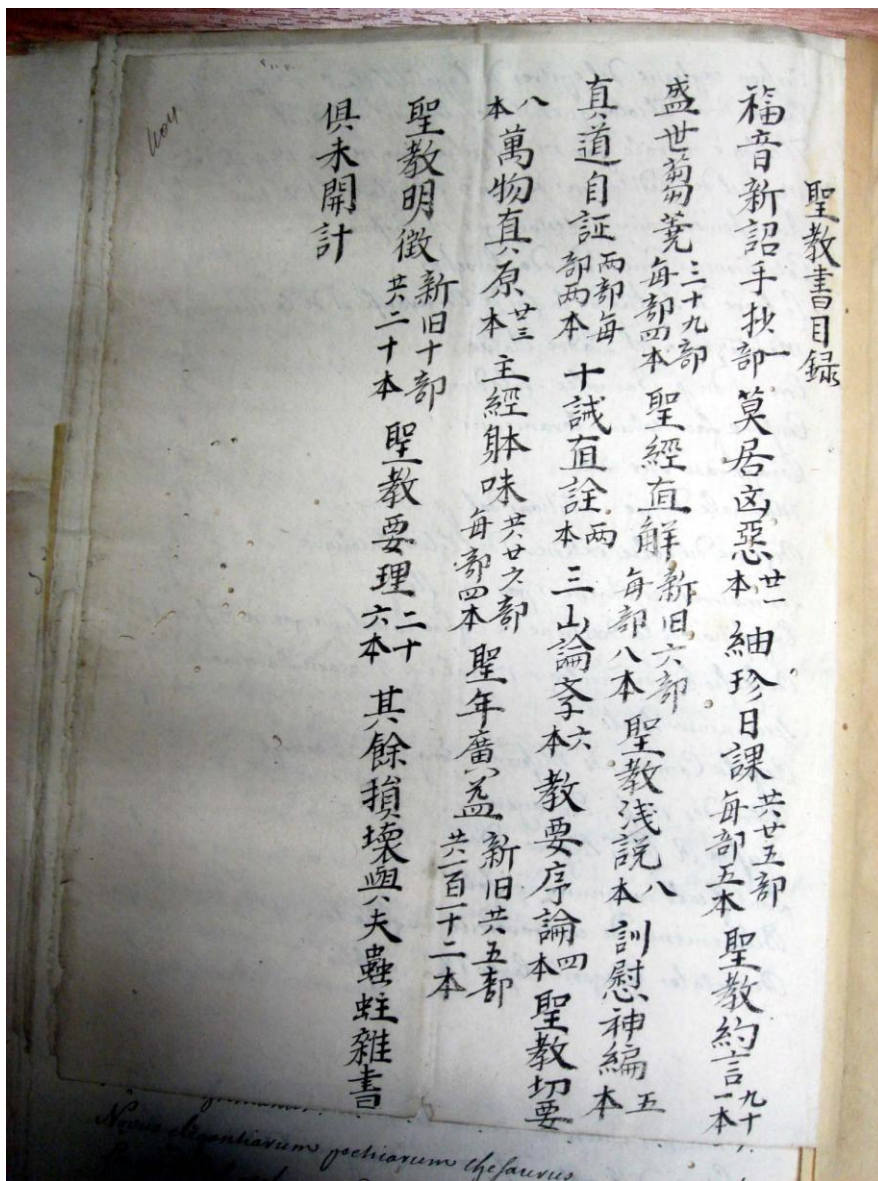 聖教書目録
福音新詔手抄一部 莫居凶惡廿一本 紬珍日課共廿五部每部五本 聖教約言九十一本
盛世蒭蕘三十九部每部四本 聖經直觧新旧六部每部八本 聖教浅説八本 訓慰神編五本
真道自証兩部每部两本 十誡直詮两本 三山論斈六本 教要序論四本 聖教切要
八本 萬物真原廿三本 主經躰味共廿六部每部四本 聖年廣益新旧共五部共一百一十二本
聖教明徴新旧十部共二十本 聖教要理二十六本 其餘損壞與夫蟲蛀雜書
俱未開計
Novus elegantiarum poeticarum thesaurus